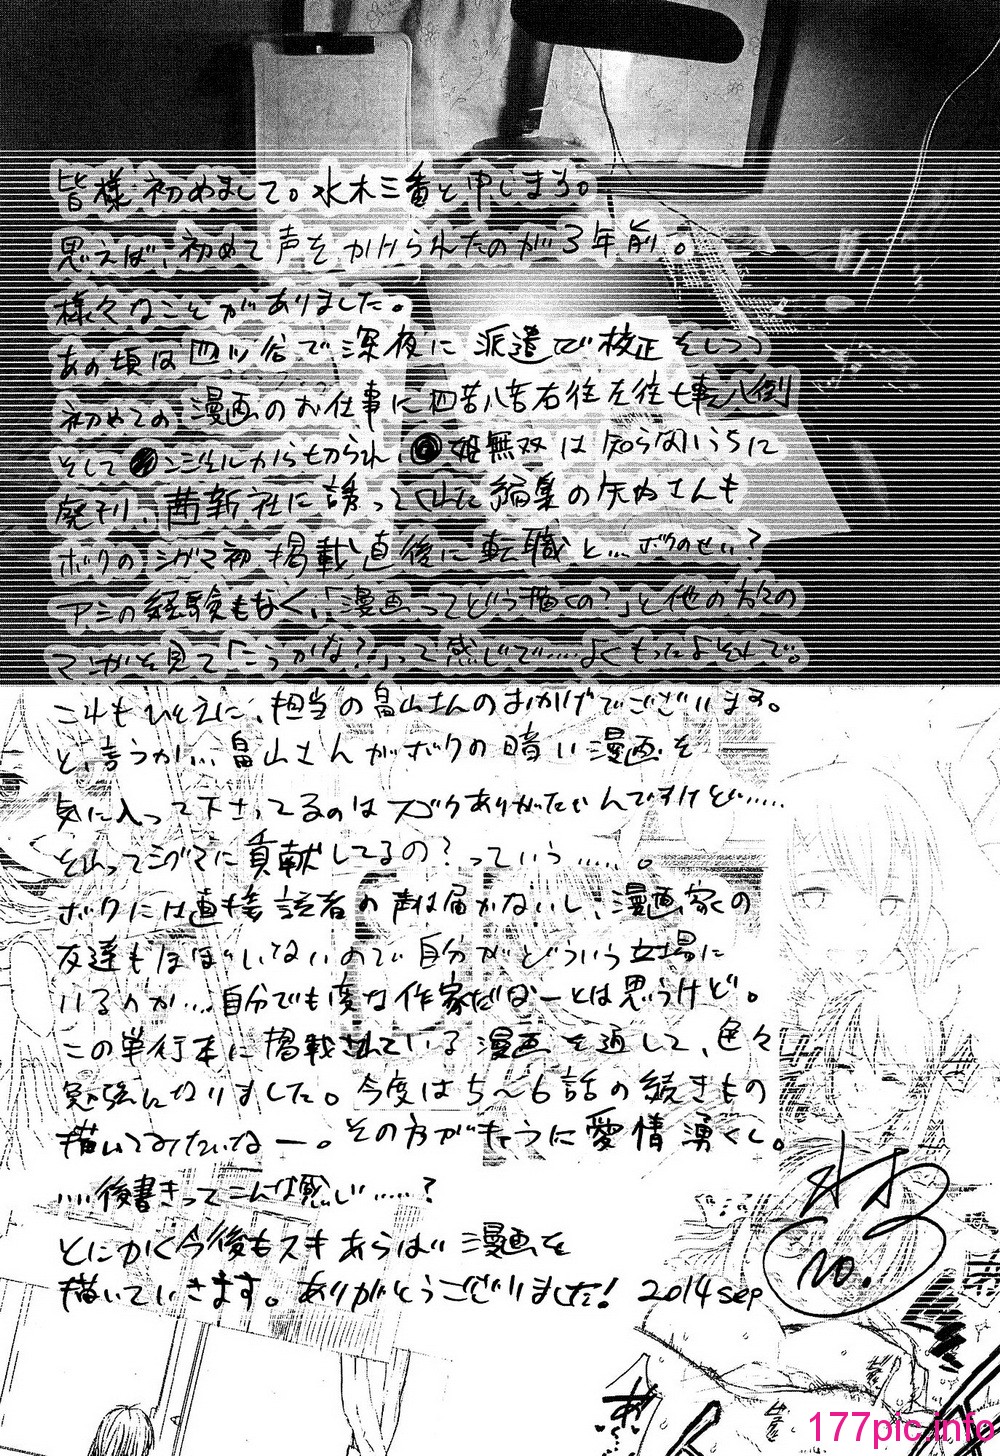 皆様初めまして。水木三番と申します。
思えば、初めて声をかけられたのが3年前。
様々なことがありました。
あの頃は四ツ谷で深夜に派遣で校正をしつつ
初めての漫画のお仕事に四苦八苦右往左往七事八倒
そして ンジェルから切られ、 姫無双は知らないうちに
廃刊、茜新社に誘ってくれた編集の矢内さんも
ボクのシグマ初掲載直後に転職と…ボクのせい?
アシの経験もなく、「漫画ってどう描くの?」と他の方々の
マンガを見て「こうかな?」って感じで……よくもったよそれで。
これもひとえに、担当の畠山さんのおかげでございます。
と、言うか…畠山さんがボクの暗い漫画を
気に入って下さってるのはスゴクありがたいんですけど……
それってシグマに貢献してるの?っていう……。
ボクには直接読者の声は届かないし、漫画家の
友達もほぼいないので自分がどういう立場に
いるのか…自分でも変な作家だなーとは思うけど。
この単行本に掲載されている漫画を通して、色々
勉強になりました。今度は5〜6話の続きもの
描いてみたいなー。その方がキャラに愛情湧くし。
…後書きってこんな感じ……?
とにかく今後もスキあらば漫画を
描いていきます。ありがとうございました! 2014 sep
水木
NO.
177pic.info